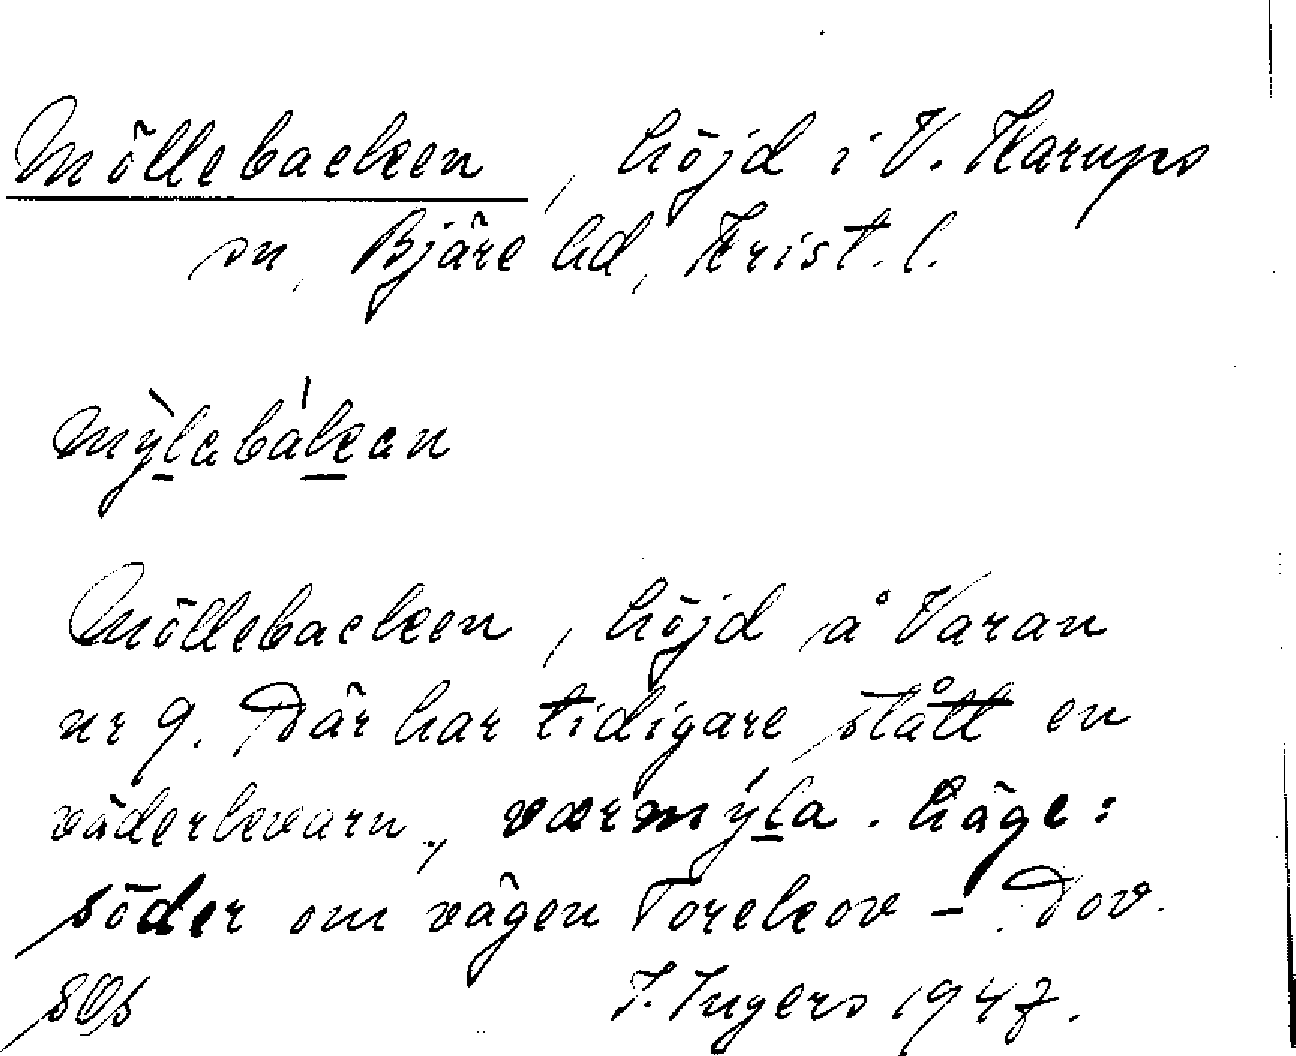 Möllebacken, höjd i V. Karups
sn, Bjäre hd, Krist. l.
mỳlabákan
Möllebacken, höjd å Varan
nr 9. Där har tidigare stått en
väderkvarn, værmýla. Läge:
söder om vägen Torekov – Dov.
I. Ingers 1947.